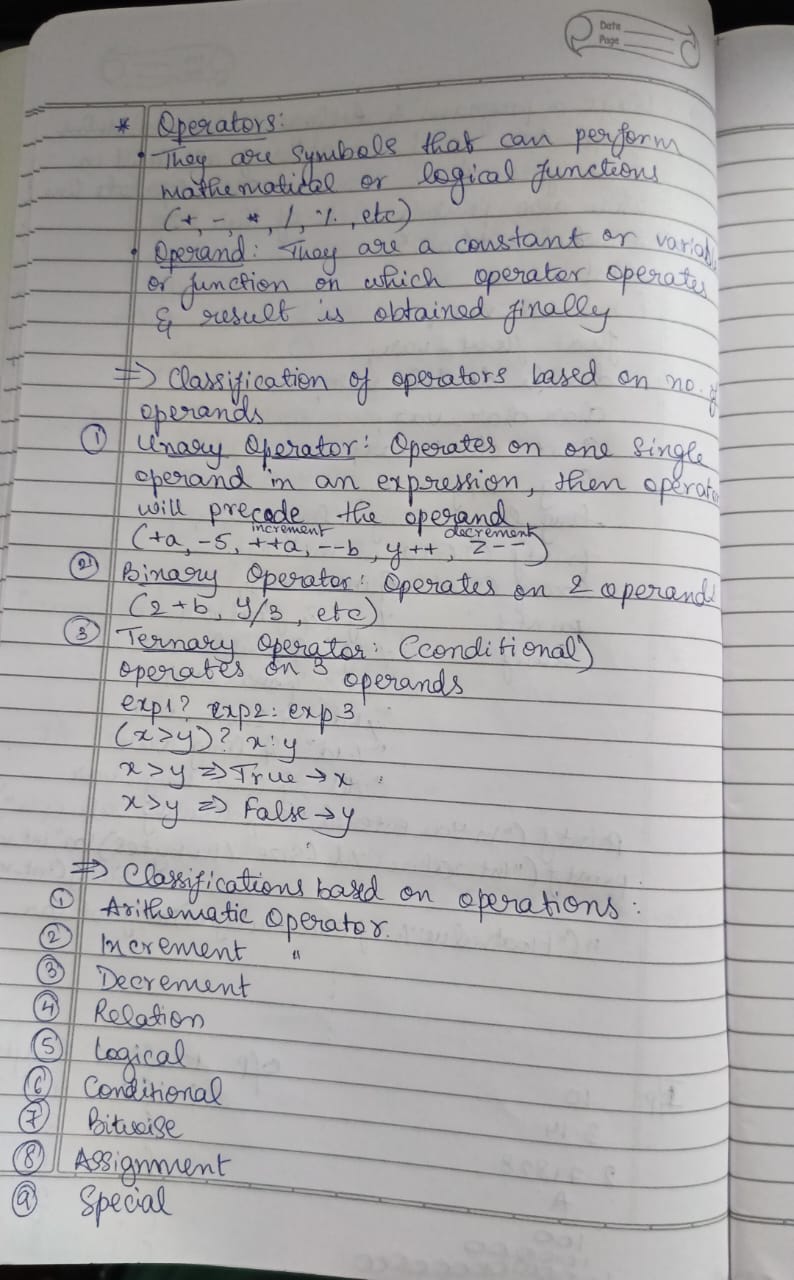 Date
Page
* Operators:
• They are symbols that can perform
mathematical or logical functions
(+, -, *, /, %, etc)
• Operand: They are a constant or variab
or function on which operator operates
& result is obtained finally
=> Classification of operators based on no. of
operands
① Unary Operator: Operates on one single
operand in an expression, then operato
will precede the operand
increment decrement
(+a, -5, ++a, --b, y++, z--)
② Binary Operator: Operates on 2 operands
(2+b, y/3, etc)
③ Ternary Operator: (conditional)
operates on 3 operands
exp1? exp2: exp3
(x>y)? x:y
x>y => True → x
x>y => False → y
=> Classifications based on operations:
① Arithematic Operator.
② Increment "
③ Decrement
④ Relation
⑤ Logical
⑥ Conditional
⑦ Bitwise
⑧ Assignment
⑨ Special